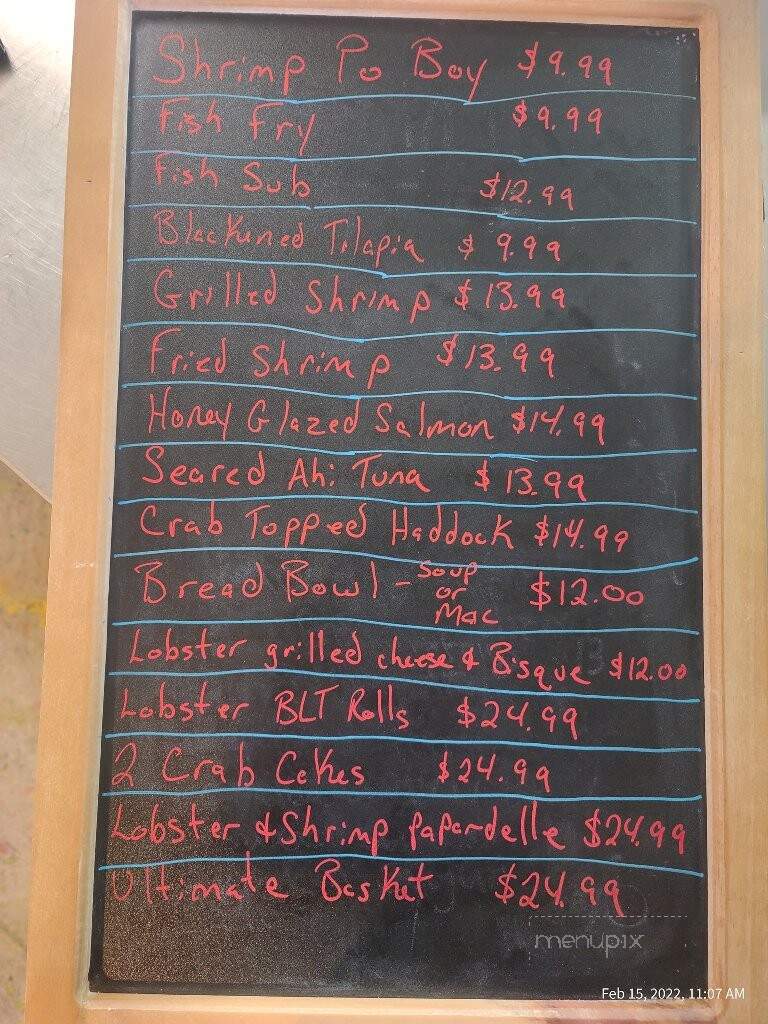 Shrimp Po Boy $9.99
Fish Fry $9.99
Fish Sub $12.99
Blackened Tilapia $9.99
Grilled Shrimp $13.99
Fried Shrimp $13.99
Honey Glazed Salmon $14.99
Seared Ahi Tuna $13.99
Crab Topped Haddock $14.99
Bread Bowl - Soup or Mac $12.00
Lobster grilled cheese & Bisque $12.00
Lobster BLT Rolls $24.99
2 Crab Cakes $24.99
Lobster & Shrimp papardelle $24.99
Ultimate Basket $24.99
menupix
Feb 15, 2022, 11:07 AM